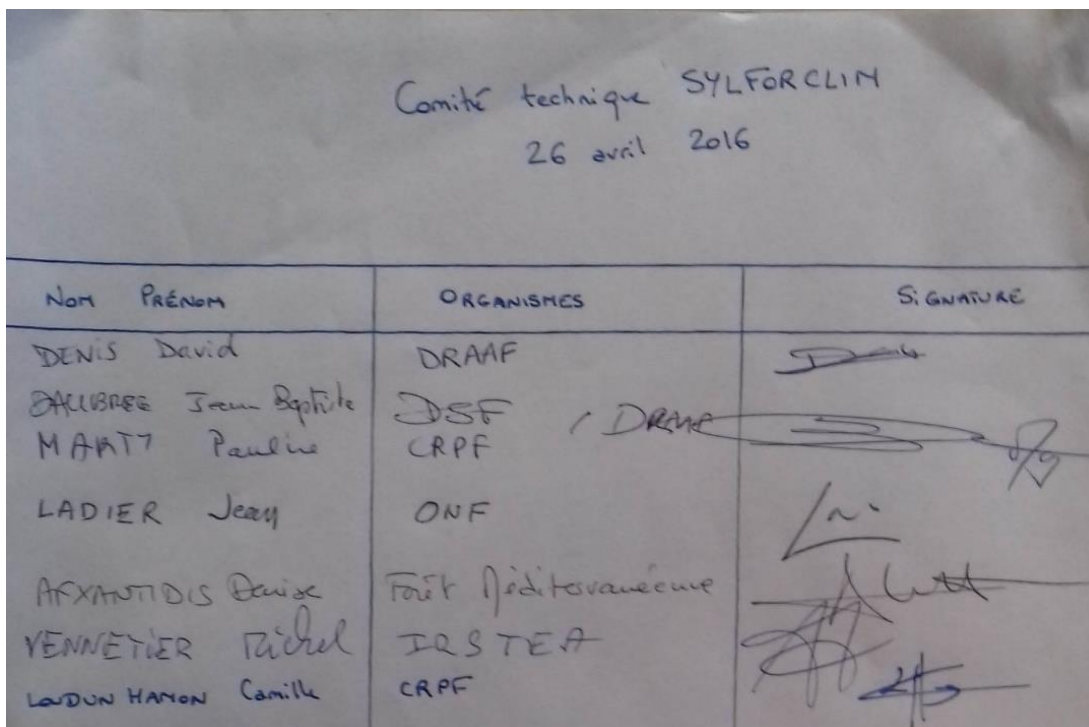 Comité technique SYLFORCLIM
26 avril 2016
NOM PRÉNOM ORGANISMES SIGNATURE
DENIS David DRAAF
DAUBREE Jean Baptiste DSF / DRAAF
MARTY Pauline CRPF
LADIER Jean ONF
AFXANTIDIS Denise Forêt Méditerranéenne
VENNETIER Michel IRSTEA
LOUDUN HAMON Camille CRPF